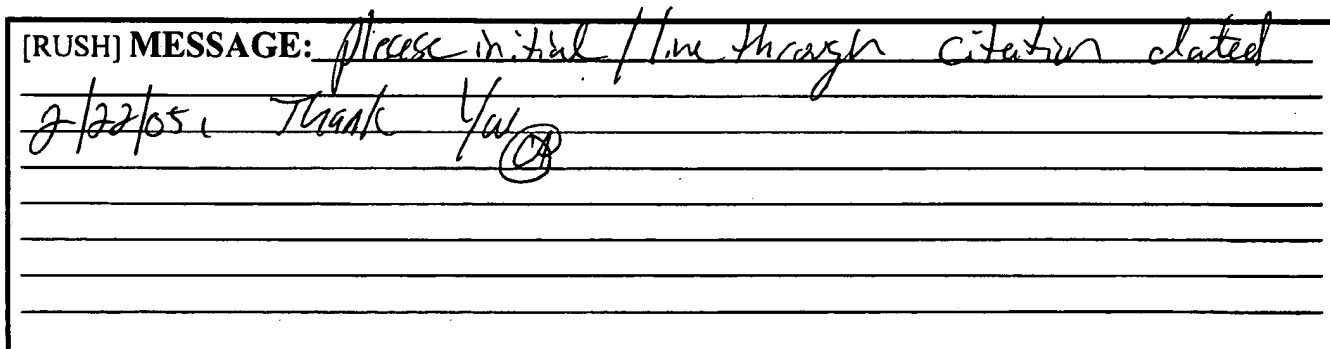 [RUSH] MESSAGE: please initial / line through citation dated
2/22/05. Thank You